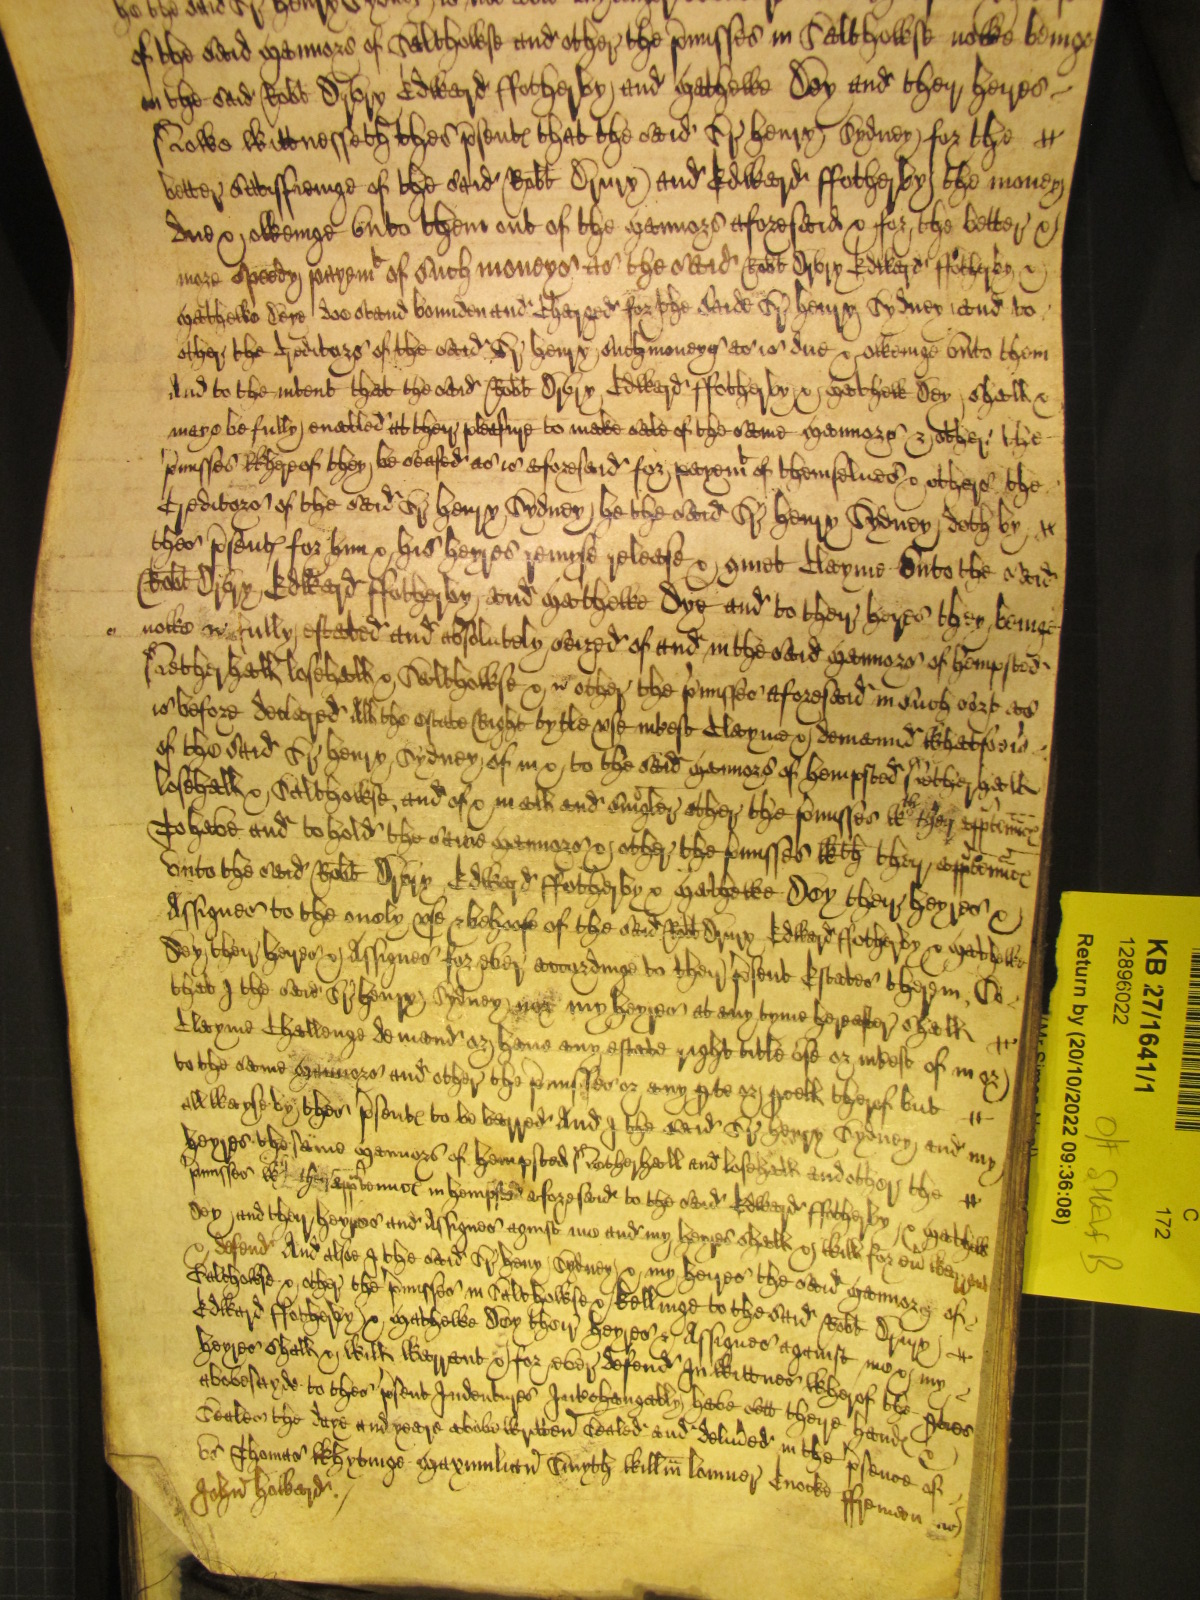 he the said Sr henry Sydney
of the said Mannors of Salthowse and other the pmisses in Salthowse nowe beinge
in the said Robt Drury Edward ffotherby and Mathewe Dey and their heires
Nowe wittnesseth thes psent that the said Sr henry Sydney for the
better satisfieinge of the said Robt Drury and Edward ffotherby the money
due & oweinge vnto them out of the Mannors aforesaid & for the better &
more speedy paymt of such moneys as the said Robt Drury Edward ffotherby &
Mathewe Deye doe stand bounden and Charged for the said Sr henry Sydney and to
other the Creditors of the said Sr henry such moneys as is due & oweinge vnto them
And to the intent that the said Robt Drury Edward ffotherby & Mathew Dey shall &
maye be fully enabled at their pleasure to make sale of the same Mannors & other the
pmisses whereof they be seased as is aforesaid for paymt of themselues & others the
Creditors of the said Sr henry Sydney he the said Sr henry Sydney doth by
thes psent for him & his heyres remyse release & quiet Clayme vnto the said
Robt Drury Edward ffotherby and Mathewe Dye and to their heires they beinge
nowe fully estated and absolutely seized of and in the said Mannors of hempsted
Netherhall losehall & Salthowse & other the pmisses aforesaid in such sort as
is before declared All the estate Right tytle vse intrest Clayme & demaund whatsoeu
of the said Sr henry Sydney of in & to the said Mannors of hempsted Netherhall
losehall & Salthowse and of & in all and singler other the pmisses wth their apptennc
To haue and to hold the same Mannors & other the pmisses wth their apptennc
vnto the said Robt Drury Edward ffotherby & Mathewe Dey their heyres &
Assignes to the onely vse & behoofe of the said Robt Drury Edward ffotherby & Mathewe
Dey their heires & Assignes for ever accordinge to their psent Estates therein So
that I the said Sr henry Sydney nor my heyres at any tyme hereafter shall
Clayme Challenge demand or haue any estate right title vse or intrest of in or
to the same Mannors and other the pmisses or any pte or pcell therof but
allwayse by thes psent to be barred And I the said Sr henry Sydney and my
heyres the same Mannors of hempsted Netherhall and losehall and other the
pmisses wth their apptennc in hempsted aforesaid to the said Edward ffotherby & Mathewe
Dey and their heyres and Assignes against me and my heyres shall & will for eu warrant
& defend And alsoe I the said Sr henry Sydney & my heires the said Mannors of
Salthowse & other the pmisses in Salthowse & Kellinge to the said Robt Drury
Edward ffotherby & Mathewe Dey their heyres & Assignes against me & my
heyres shall & will warrant & for ever defend In wittnes wherof the pties
abovesayde to thes psent Indentures Interchangably have sett there hand &
Seales the daye and yeare above written Sealed and deliued in the psence of
vs Thomas Whytinge Maxmilian Smyth Willm lomner Enocke ffremon
John howard
KB 27/1641/1
12896022
Return by (20/10/2022 09:36:08)
C
172